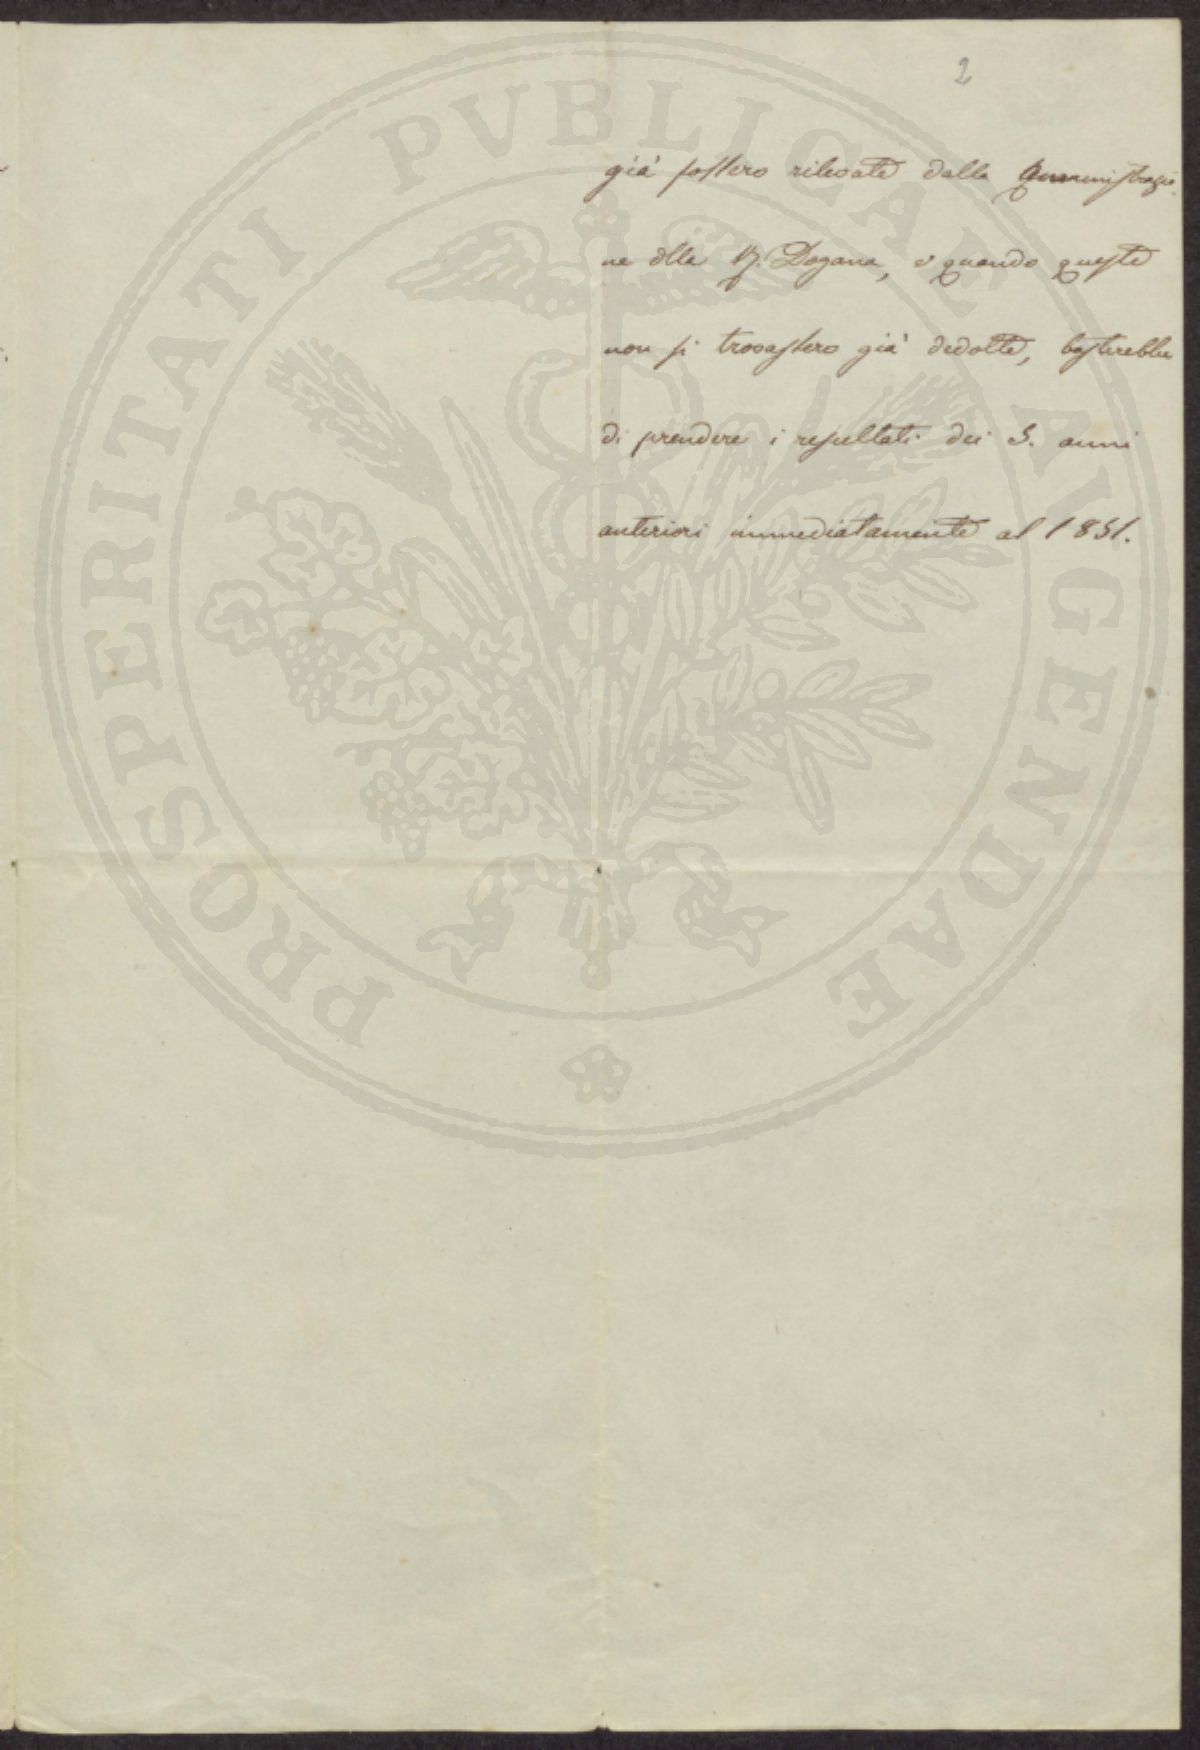 2
già fossero rilevate dalla Amministrazio
ne dlla R. Dogana, e quando queste
non si trovassero già dedotte, basterebbe
di prendere i resultati dei 3. anni
anteriori immediatamente al 1851.
PROSPERITATI PVBLICAE AVGENDAE